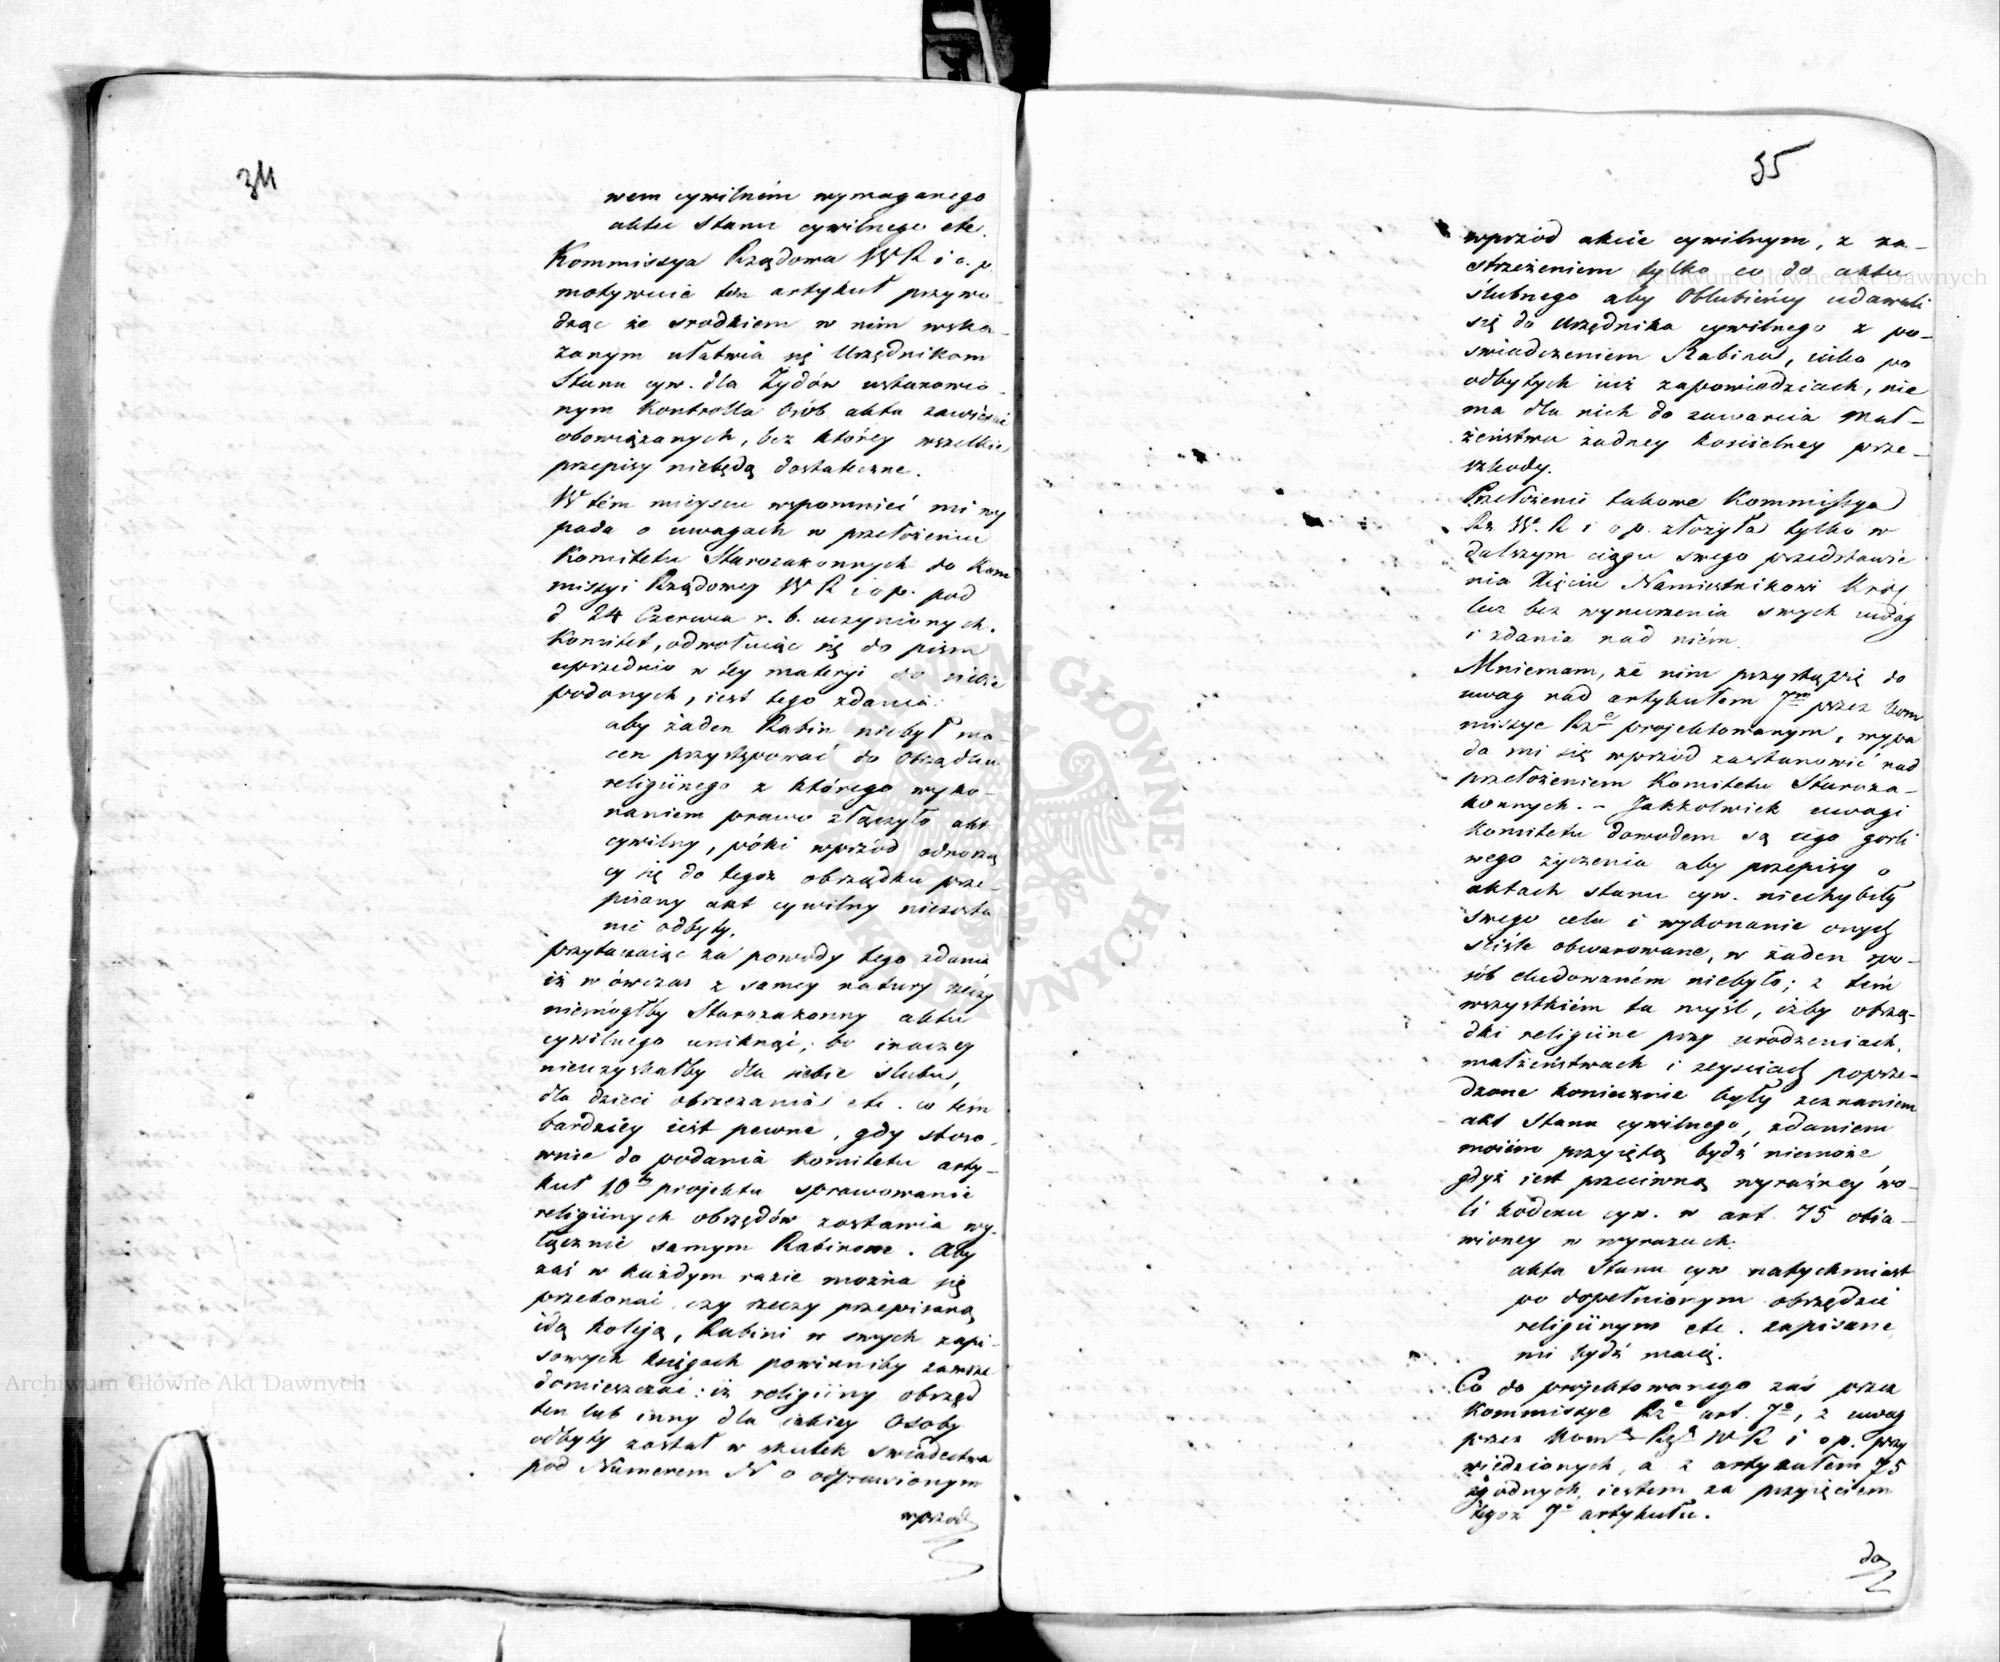 34
wem cywilném wymaganego
aktu stanu cywilnego etc.
Kommissya Rządowa W R i o. p.
motywuie ten artykuł przywo-
dząc że srodkiem w nim wska-
zanym ułatwia się Urzędnikom
Stanu cyw. dla Żydów ustanowio-
nym kontrolla Osób akta zawierać
obowiązanych, bez którey wszelkie
przepisy niebędą dostateczne.
W tém mieyscu wspomnieć mi wy
pada o uwagach w przełożeniu
Komitetu Starozakonnych do Kom
missyi Rządowey W R i o p. pod
d 24 Czerwca r. b. uczynionych.
Komitet, odwołuiąc się do pism
uprzednio w tey materyi do niéy
podanych, iest tego zdania:
aby żaden Rabin niebył mo-
cen przystępować do Obrządku
religiinego z którego wyko-
naniem prawo złączyło akt
cywilny, póki wprzód odnoszą
cy się do tegoż obrządku prze-
pisany akt cywilny niezosta
nie odbyty.
przytaczaiąc za powody tego zdania
iż w ówczas z samey natury rzeczy
niemógłby Starozakonny aktu
cywilnego uniknąć, bo inaczey
nieuzyskałby dla siebie slubu,
dla dzieci obrzezania etc. co tém
bardziey iest pewne, gdy stoso-
wnie do podania Komitetu arty-
kuł 10ty projektu sprawowanie
religiinych obrzędów zostawia wy-
łącznie samym Rabinom. Aby
zaś w każdym razie można się
przekonać, czy rzeczy przepisaną
idą koleją, Rabini w swych zapi-
sowych księgach powinniby zawsze
domieszczać: iż religiiny obrzęd
ten lub inny dla iakiey Osoby
odbyty został w skutek swiadectwa
pod Numerem N o odprawionym
wprzod
35
wprzód akcie cywilnym, z za-
strzeżeniem tylko co do aktu
ślubnego aby Oblubieńcy udawali
się do Urzędnika cywilnego z po-
swiadczeniem Rabina, iako po
odbytych iuż zapowiedziach, nie
ma dla nich do zawarcia Mał-
żeństwa żadney kościelney prze-
szkody.
Przełożenie takowe Kommissya
Rz. W. R i o p. złożyła tylko w
dalszym ciągu swego przedstawie
nia Xięciu Namiestnikowi Król
lecz bez wynurzenia swych uwag
i zdania nad niém.
Mniemam, że nim przystąpię do
uwag nad artykułem 7m przez Kom
missye Rze projektowanym, wypa
da mi się wprzód zastanowić nad
przełożeniem Komitetu Staroza-
konnych. - Jakkolwiek uwagi
Komitetu dowodem są iego gorli
wego życzenia aby przepisy o
aktach stanu cyw. niechybiły
swego celu i wykonanie onych
ściśle obwarowane, w żaden spo-
sób eludowaném niebyło; z tém
wszystkiém ta myśl, iżby obrzą-
dki religiine przy urodzeniach,
małżeństwach i zeysciach poprze-
dzone koniecznie były zeznaniem
akt Stanu cywilnego, zdaniem
moiém przyiętą bydź niemoże,
gdyż iest przeciwną wyraźney wo-
li kodexu cyw. w art. 75 obia-
wioney w wyrazach:
akta Stanu cyw natychmiast
po dopełnionym obrzędzie
religiinym etc. zapisane
mi bydź maią.
Co do projektowanego zaś przez
Kommissye Rze art. 7o, z uwag
przez Kom. Rz. W R i o p. przy
wiedzionych, a z artykułem 75
zgodnych, iestem za przyięciem
tegoż 7o artykułu.
do
Archiwum Główne Akt Dawnych
Archiwum Główne Akt Dawnych
ARCHIWUM GŁÓWNE AKT DAWNYCH